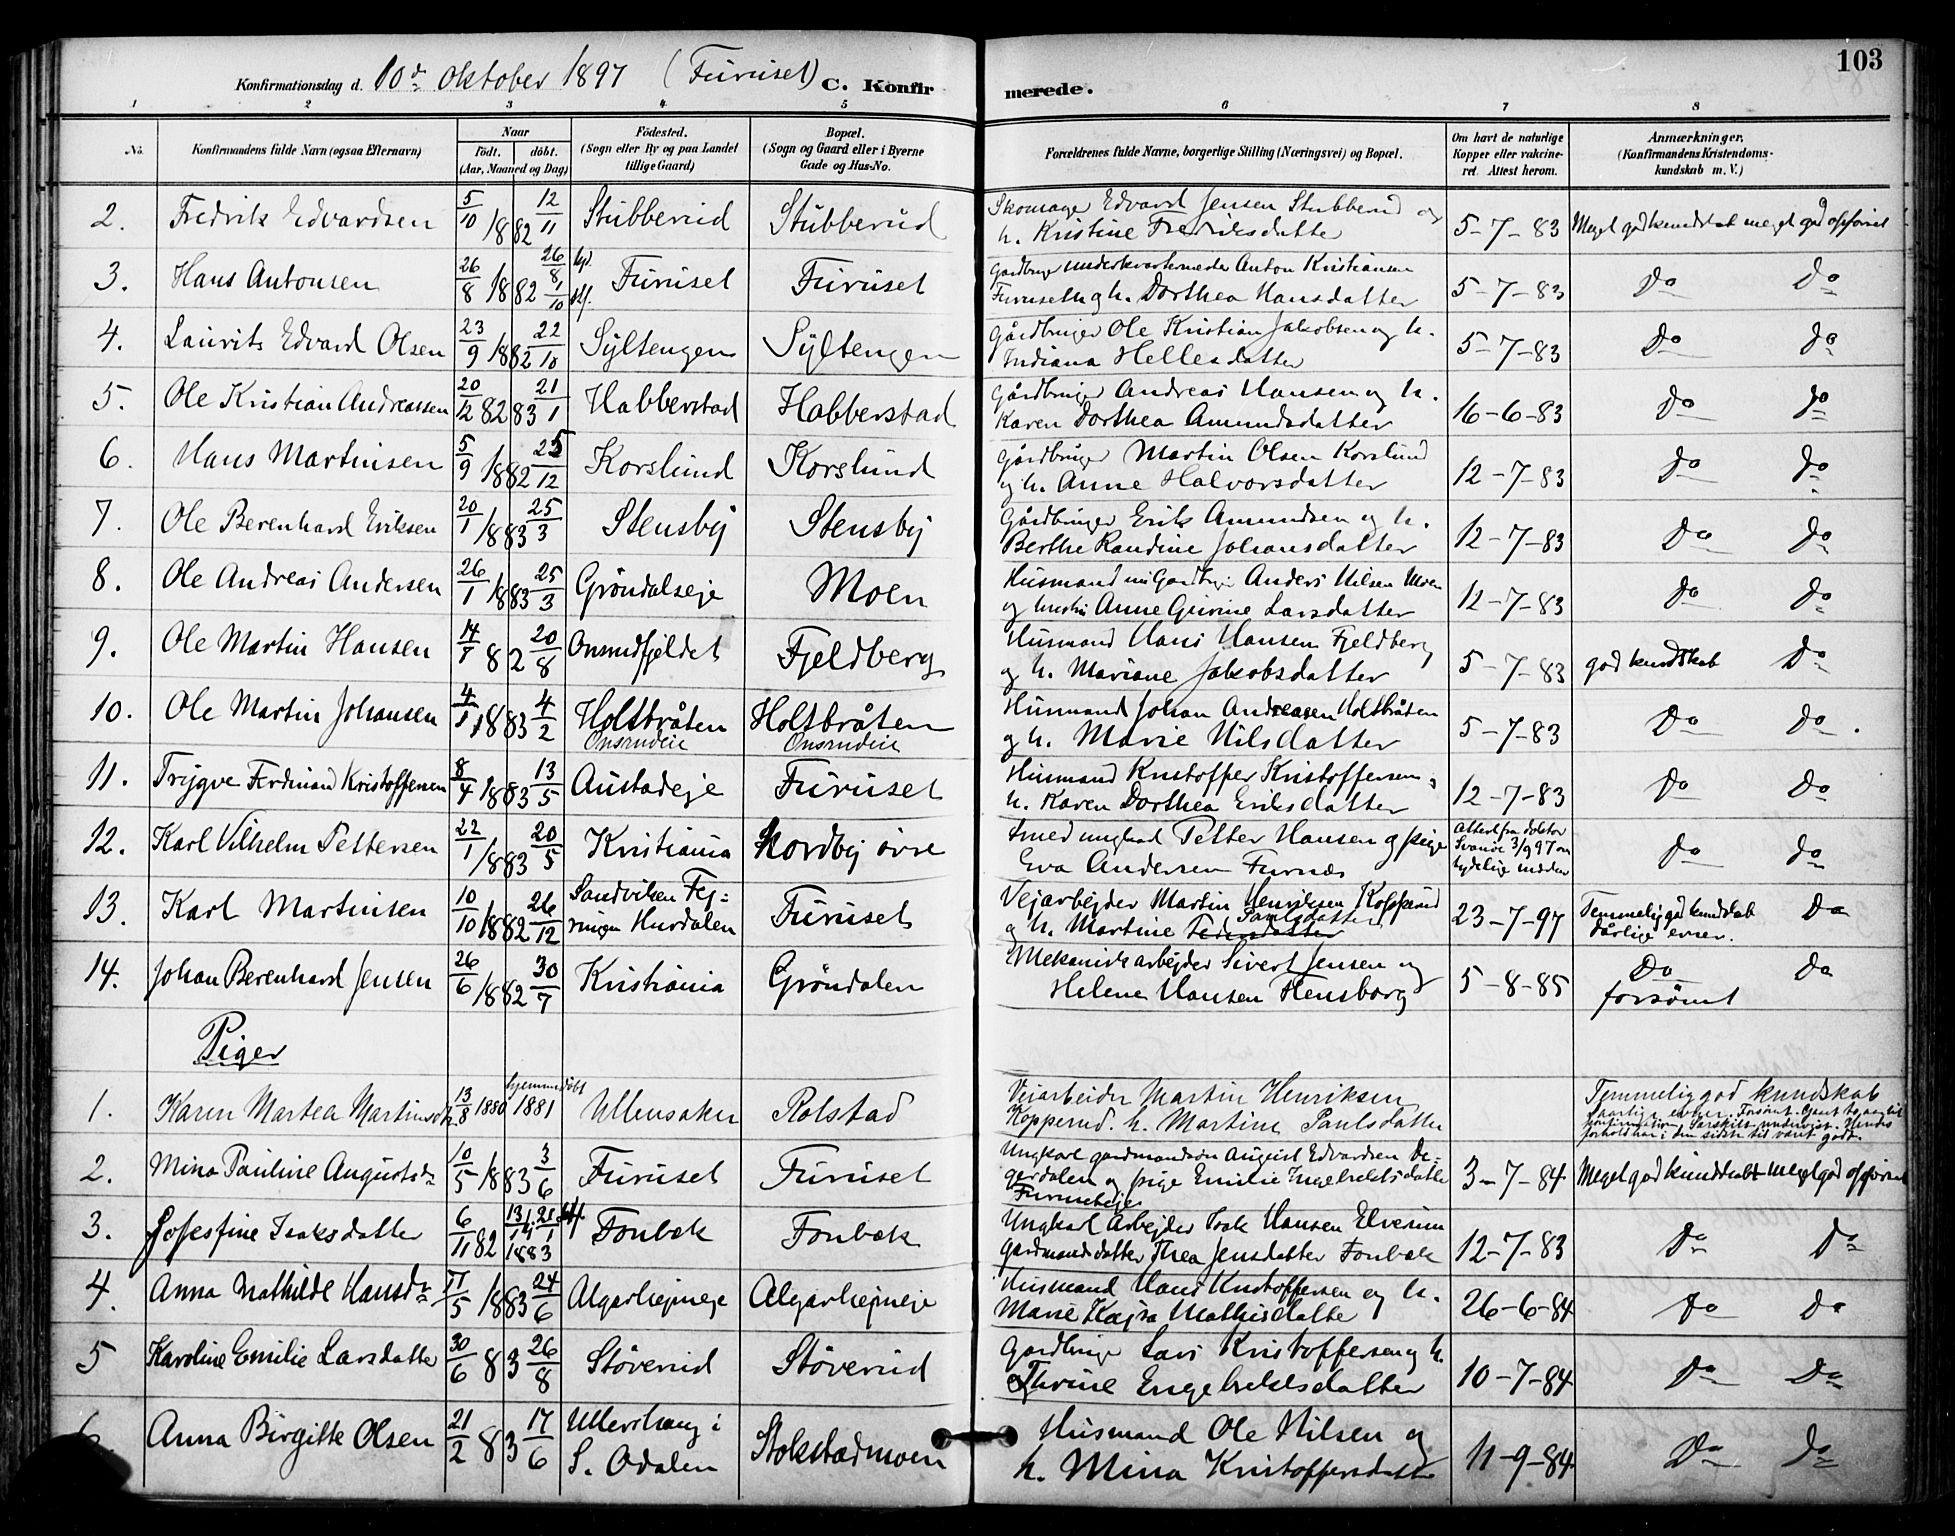 103
Konfirmationsdag d. 10de Oktober 1897 (Furuset) C. Konfirmerede.
1 2 3 4 5 6 7 8
No. Konfirmandens fulde Navn (ogsaa Efternavn) Naar Födt. döbt. (Aar, Maaned og Dag) Födested. (Sogn eller By og paa Landet tillige Gaard) Bopæl. (Sogn og Gaard eller i Byerne Gade og Hus-No. Forældrenes fulde Navne, borgerlige Stilling (Næringsvei) og Bopæl. Om havt de naturlige Kopper eller vakcineret. Attest herom. Anmærkninger, (Konfirmandens Kristendomskundskab m. V.)
2. Fredrik Edvardsen 5/10 1882 12/11 Stubberud Stubberud Skomager Edvard Jensen Stubberud og
h. Kristine Fredriksdatter 5-7-83 Meget god kundskab meget god opförsel
3. Hans Antonsen 26/8 1882 26/8 1/10 Furuset Furuset Gaardbruger Underkvartermester Anton Kristiansen
Furuseth og h. Dorthea Hansdatter 5-7-83 Do Do
4. Laurits Edvard Olsen 23/9 1882 22/10 Syltengen Syltengen Gårdbruger Ole Kristian Jakobsen og h.
Indiana Hellesdatter 5-7-83 Do Do
5. Ole Kristian Andreassen 20/12 82 83 21/1 Habberstad Habberstad Gårdbruger Andreas Hansen og h.
Karen Dorthea Amundsdatter 16-6-83 Do Do
6. Hans Martinsen 5/9 1882 25/12 Korslund Korslund Gårdbruger Martin Olsen Korslund
og h. Anne Halvorsdatter 12-7-83 Do Do
7. Ole Berenhard Eriksen 20/1 1883 25/3 Stensby Stensby Gårdbruger Erik Amundsen og h.
Berthe Randine Johansdatter 12-7-83 Do Do
8. Ole Andreas Andersen 26/1 1883 25/3 Gröndalseje Moen Husmand nu Gardbruger Anders Nilsen Moen
og hustru Anne Gurine Larsdatter 12-7-83 Do Do
9. Ole Martin Hansen 14/7 82 20/8 Onsrudfjeldet Fjeldberg Husmand Hans Hansen Fjeldberg
og h. Mariane Jakobsdatter 5-7-83 god kundskab Do
10. Ole Martin Johansen 4/1 1883 4/2 Holtbråten Onsrudeie Holtbråten Onsrudeie Husmand Johan Andreasen Holtbråten
og h. Marie Nilsdatter 5-7-83 Do Do.
11. Trygve Ferdinand Kristoffersen 8/4 1883 13/5 Austadeje Furuset Husmand Kristoffer Kristoffersen og
h. Karen Dorthea Eriksdatter 12-7-83 Do Do
12. Karl Vilhelm Pettersen 22/1 1883 20/5 Kristiania Nordby övre Smed ungkarl Petter Hansen og pige
Eva Andersen Furnæs Attest fra doktor Svanöe 3/9 97 om tydelige mærker Do Do
13. Karl Martinsen 10/10 1882 26/12 Sandviken Fejringen Hurdalen Furuset Vejarbejder Martin Henriksen Kopperud
og h. Martine Paulsdatter 23-7-97 Temmelig god kundskab dårlige evner. Do
14. Johan Berenhard Jensen 26/6 1882 30/7 Kristiania Gröndalen Mekanisk arbejder Sivert Jensen og
Helene Hansen Hensborg 5-8-85 Do forsömt Do
Piger
1. Karen Martea Martinsdtr. 13/8 1880 hjemmedöbt 1881 Ullensaker Rolstad Veiarbeider Martin Henriksen
Kopperud. h. Martine Paulsdatter Temmelig god kundskab
daarlige evner. Forsömt.
konfirmation. Særskilt undervist. Hendes
forhold har i den sidste tid været godt.
2. Mina Pauline Augustsdr 10/5 1883 3/6 Furuset Furuset Ungkarl gaardmandssön August Edvardsen De-
gerdalen og pige Emilie Ingebretsdatter
Furuseteje 3-7-84 Meget god kundskab Meget god opförsel
3. Josefine Isaksdatter 6/11 82 1883 Fonbæk Fonbæk Ungkarl Arbejder Isak Hansen Elverum
gaardmandsdatter Thea Jensdatter Fonbæk 12-7-83 Do Do
4. Anna Mathilde Hansdr 11/5 1883 24/6 Algarhejmeje Algarhejmeje Husmand Hans Kristoffersen og h.
Marie Kajsa Mathisdatter 26-6-84 Do Do
5 Karoline Emilie Larsdatter 30/6 83 26/8 Stöverud Stöverud Gardbruger Lars Kristoffersen og h.
Thrine Engebretsdatter 10-7-84 Do Do
6. Anna Birgitte Olsen 21/2 83 17/6 Ullershaug i S. Odalen Stokstadmoen Husmand Ole Nilsen og
h. Mina Kristoffersdatter 11-9-84 Do Do